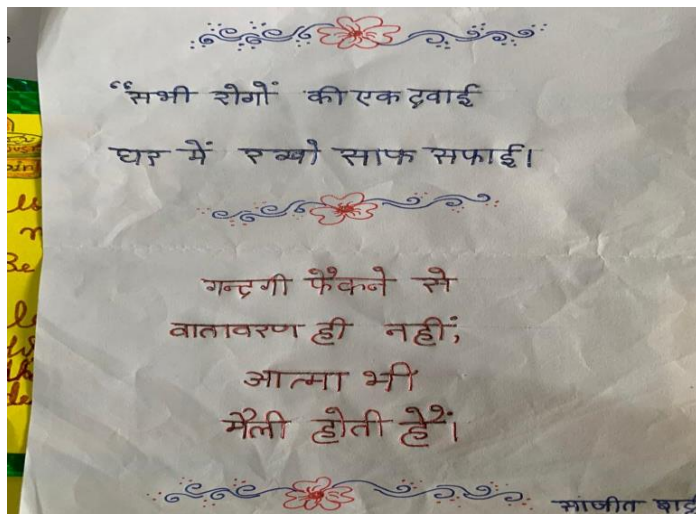 “सभी रोगों की एक दवाई
घर में रखो साफ सफाई।
गन्दगी फैंकने से
वातावरण ही नहीं,
आत्मा भी
मैली होती हैं।